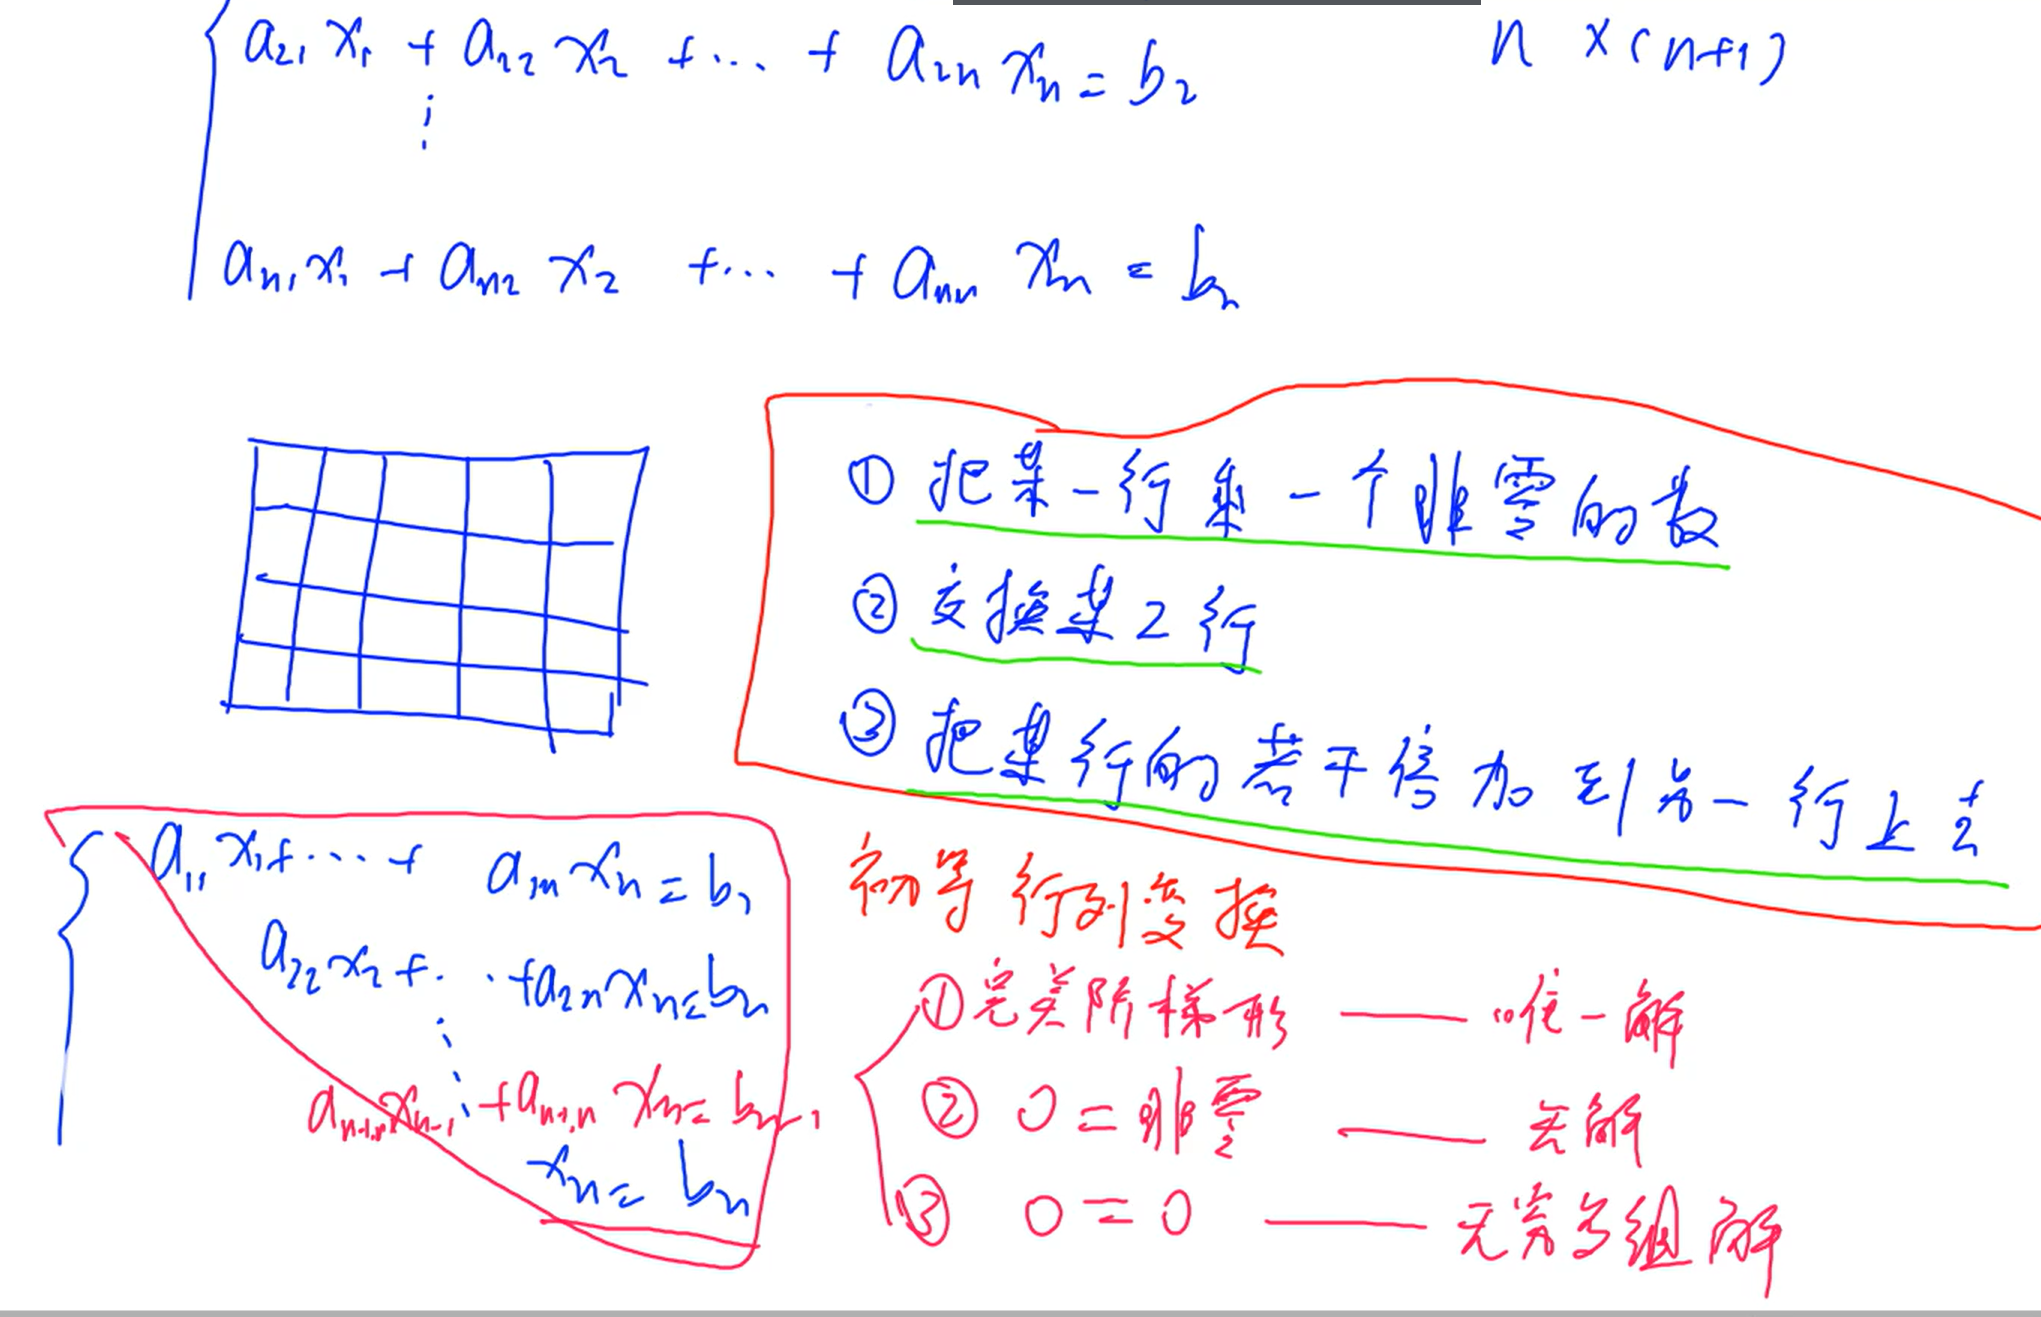 a₂₁ x₁ + a₂₂ x₂ + ... + a₂ₙ xₙ = b₂
n × (n+1)
⋮
aₙ₁ x₁ + aₙ₂ x₂ + ... + aₙₙ xₙ = bₙ
① 把某一行乘一个非零的数
② 交换某2行
③ 把某行的若干倍加到另一行上去
初等行列变换
a₁₁ x₁ + ... + a₁ₙ xₙ = b₁
a₂₂ x₂ + ... + a₂ₙ xₙ = bₙ
⋱
aₙ₋₁,ₙ₋₁ xₙ₋₁ + aₙ₋₁,ₙ xₙ = bₙ₋₁
xₙ = bₙ
① 完美阶梯形 —— 唯一解
② 0 = 非零 —— 无解
③ 0 = 0 —— 无穷多组解